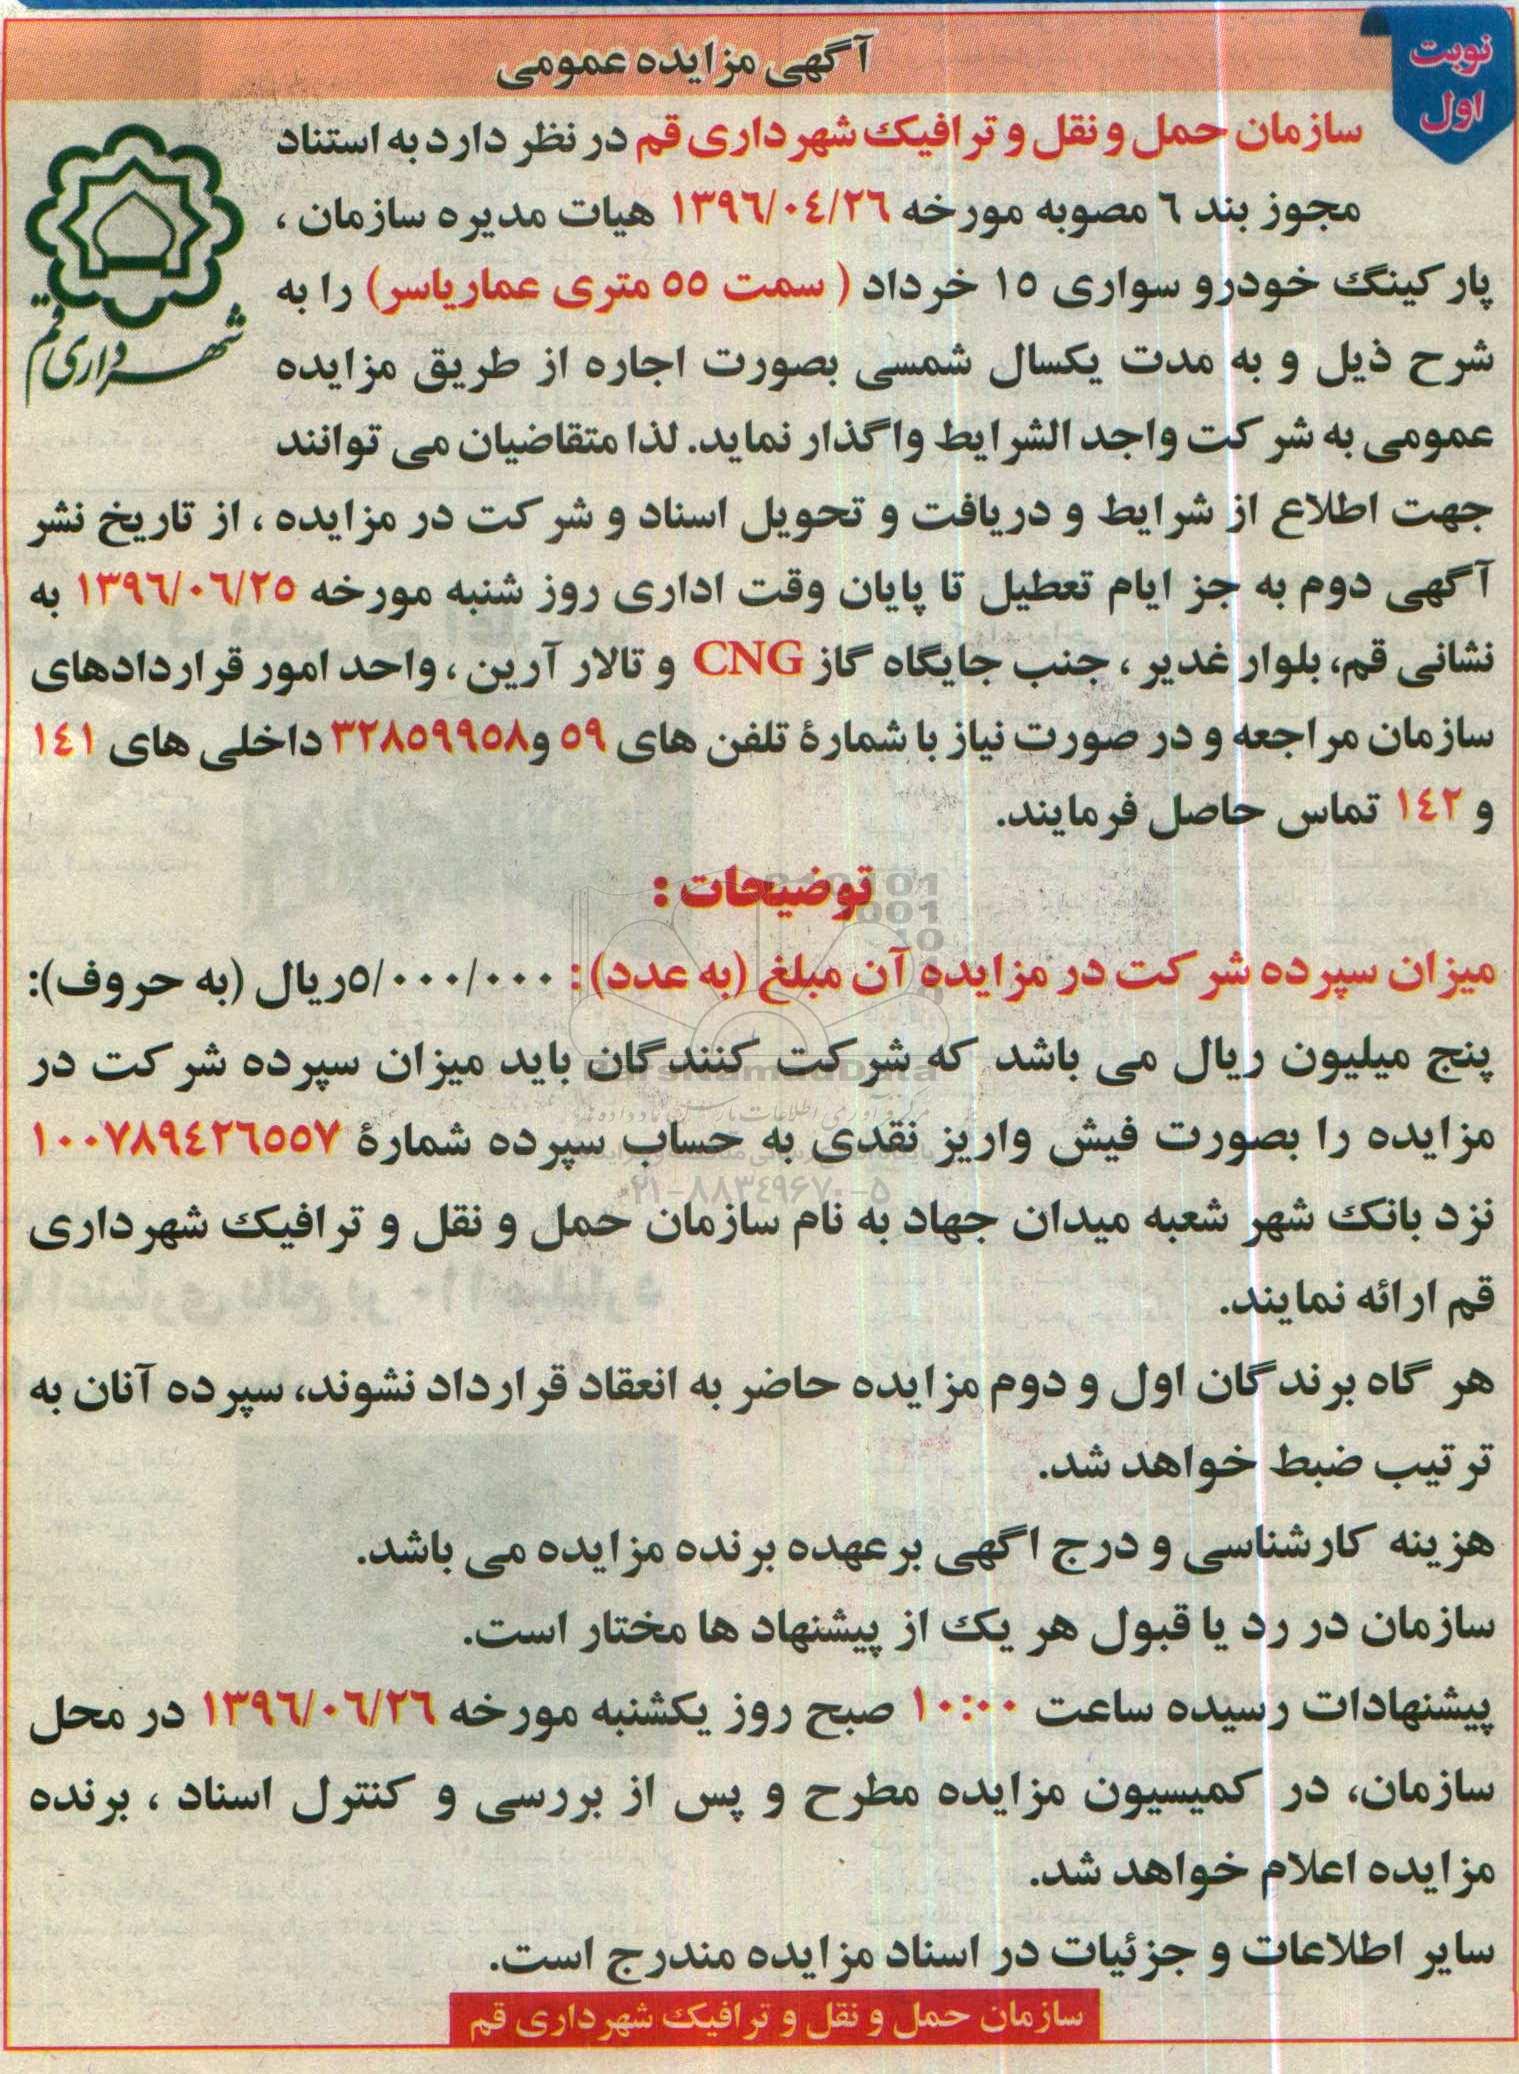 نوبت
اول
آگهی مزایده عمومی
سازمان حمل و نقل و ترافیک شهرداری قم در نظر دارد به استناد
مجوز بند ٦ مصوبه مورخه ١٣٩٦/٠٤/٢٦ هیات مدیره سازمان ،
پارکینگ خودرو سواری ١٥ خرداد ( سمت ٥٥ متری عماریاسر) را به
شرح ذیل و به مدت یکسال شمسی بصورت اجاره از طریق مزایده
عمومی به شرکت واجد الشرایط واگذار نماید. لذا متقاضیان می توانند
جهت اطلاع از شرایط و دریافت و تحویل اسناد و شرکت در مزایده ، از تاریخ نشر
آگهی دوم به جز ایام تعطیل تا پایان وقت اداری روز شنبه مورخه ١٣٩٦/٠٦/٢٥ به
نشانی قم، بلوار غدیر ، جنب جایگاه گاز CNG و تالار آرین ، واحد امور قراردادهای
سازمان مراجعه و در صورت نیاز با شمارهٔ تلفن های ٥٩ و٣٢٨٥٩٩٥٨ داخلی های ١٤١
و ١٤٢ تماس حاصل فرمایند.
شهرداری قم
توضیحات :
میزان سپرده شرکت در مزایده آن مبلغ (به عدد): ٥/٠٠٠/٠٠٠ریال (به حروف):
پنج میلیون ریال می باشد که شرکت کنندگان باید میزان سپرده شرکت در
مزایده را بصورت فیش واریز نقدی به حساب سپرده شمارهٔ ١٠٠٧٨٩٤٢٦٥٥٧
نزد بانک شهر شعبه میدان جهاد به نام سازمان حمل و نقل و ترافیک شهرداری
قم ارائه نمایند.
هر گاه برندگان اول و دوم مزایده حاضر به انعقاد قرارداد نشوند، سپرده آنان به
ترتیب ضبط خواهد شد.
هزینه کارشناسی و درج اگهی برعهده برنده مزایده می باشد.
سازمان در رد یا قبول هر یک از پیشنهاد ها مختار است.
پیشنهادات رسیده ساعت ١٠:٠٠ صبح روز یکشنبه مورخه ١٣٩٦/٠٦/٢٦ در محل
سازمان، در کمیسیون مزایده مطرح و پس از بررسی و کنترل اسناد ، برنده
مزایده اعلام خواهد شد.
سایر اطلاعات و جزئیات در اسناد مزایده مندرج است.
سازمان حمل و نقل و ترافیک شهرداری قم
ParsNamadData
۰۲۱-۸۸۳۴۹۶۷۰-۵